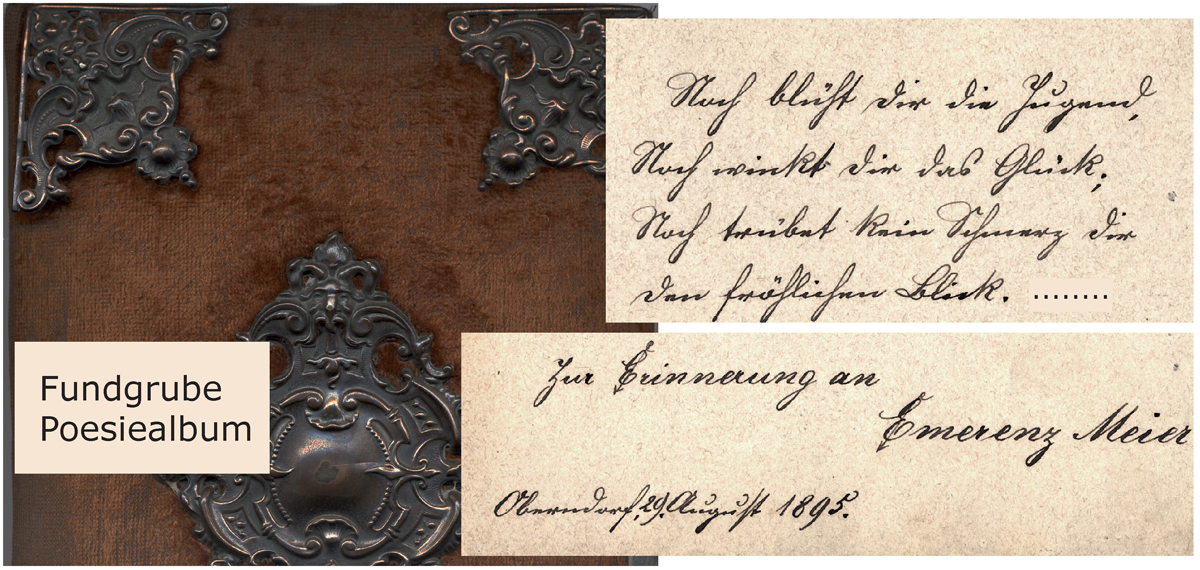 Noch blüht dir die Jugend,
Noch winkt dir das Glück;
Noch trübet kein Schmerz dir
den fröhlichen Blick. ........
Fundgrube
Poesiealbum
Zur Erinnerung an
Emerenz Meier
Oberndorf, 29. August 1895.